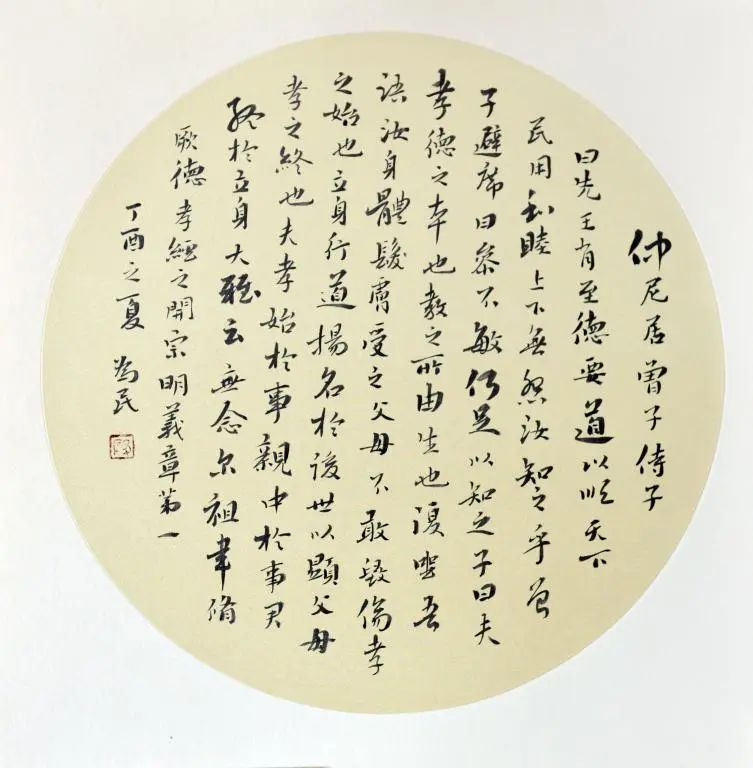 仲尼居曾子侍子
曰先王有至德要道以順天下
民用和睦上下無怨汝知之乎曾
子避席曰參不敏何足以知之子曰夫
孝德之本也教之所由生也復坐吾
語汝身體髮膚受之父母不敢毀傷孝
之始也立身行道揚名於後世以顯父母
孝之終也夫孝始於事親中於事君
終於立身大雅云無念尔祖聿脩
厥德孝經之開宗明義章第一
丁酉之夏 為民